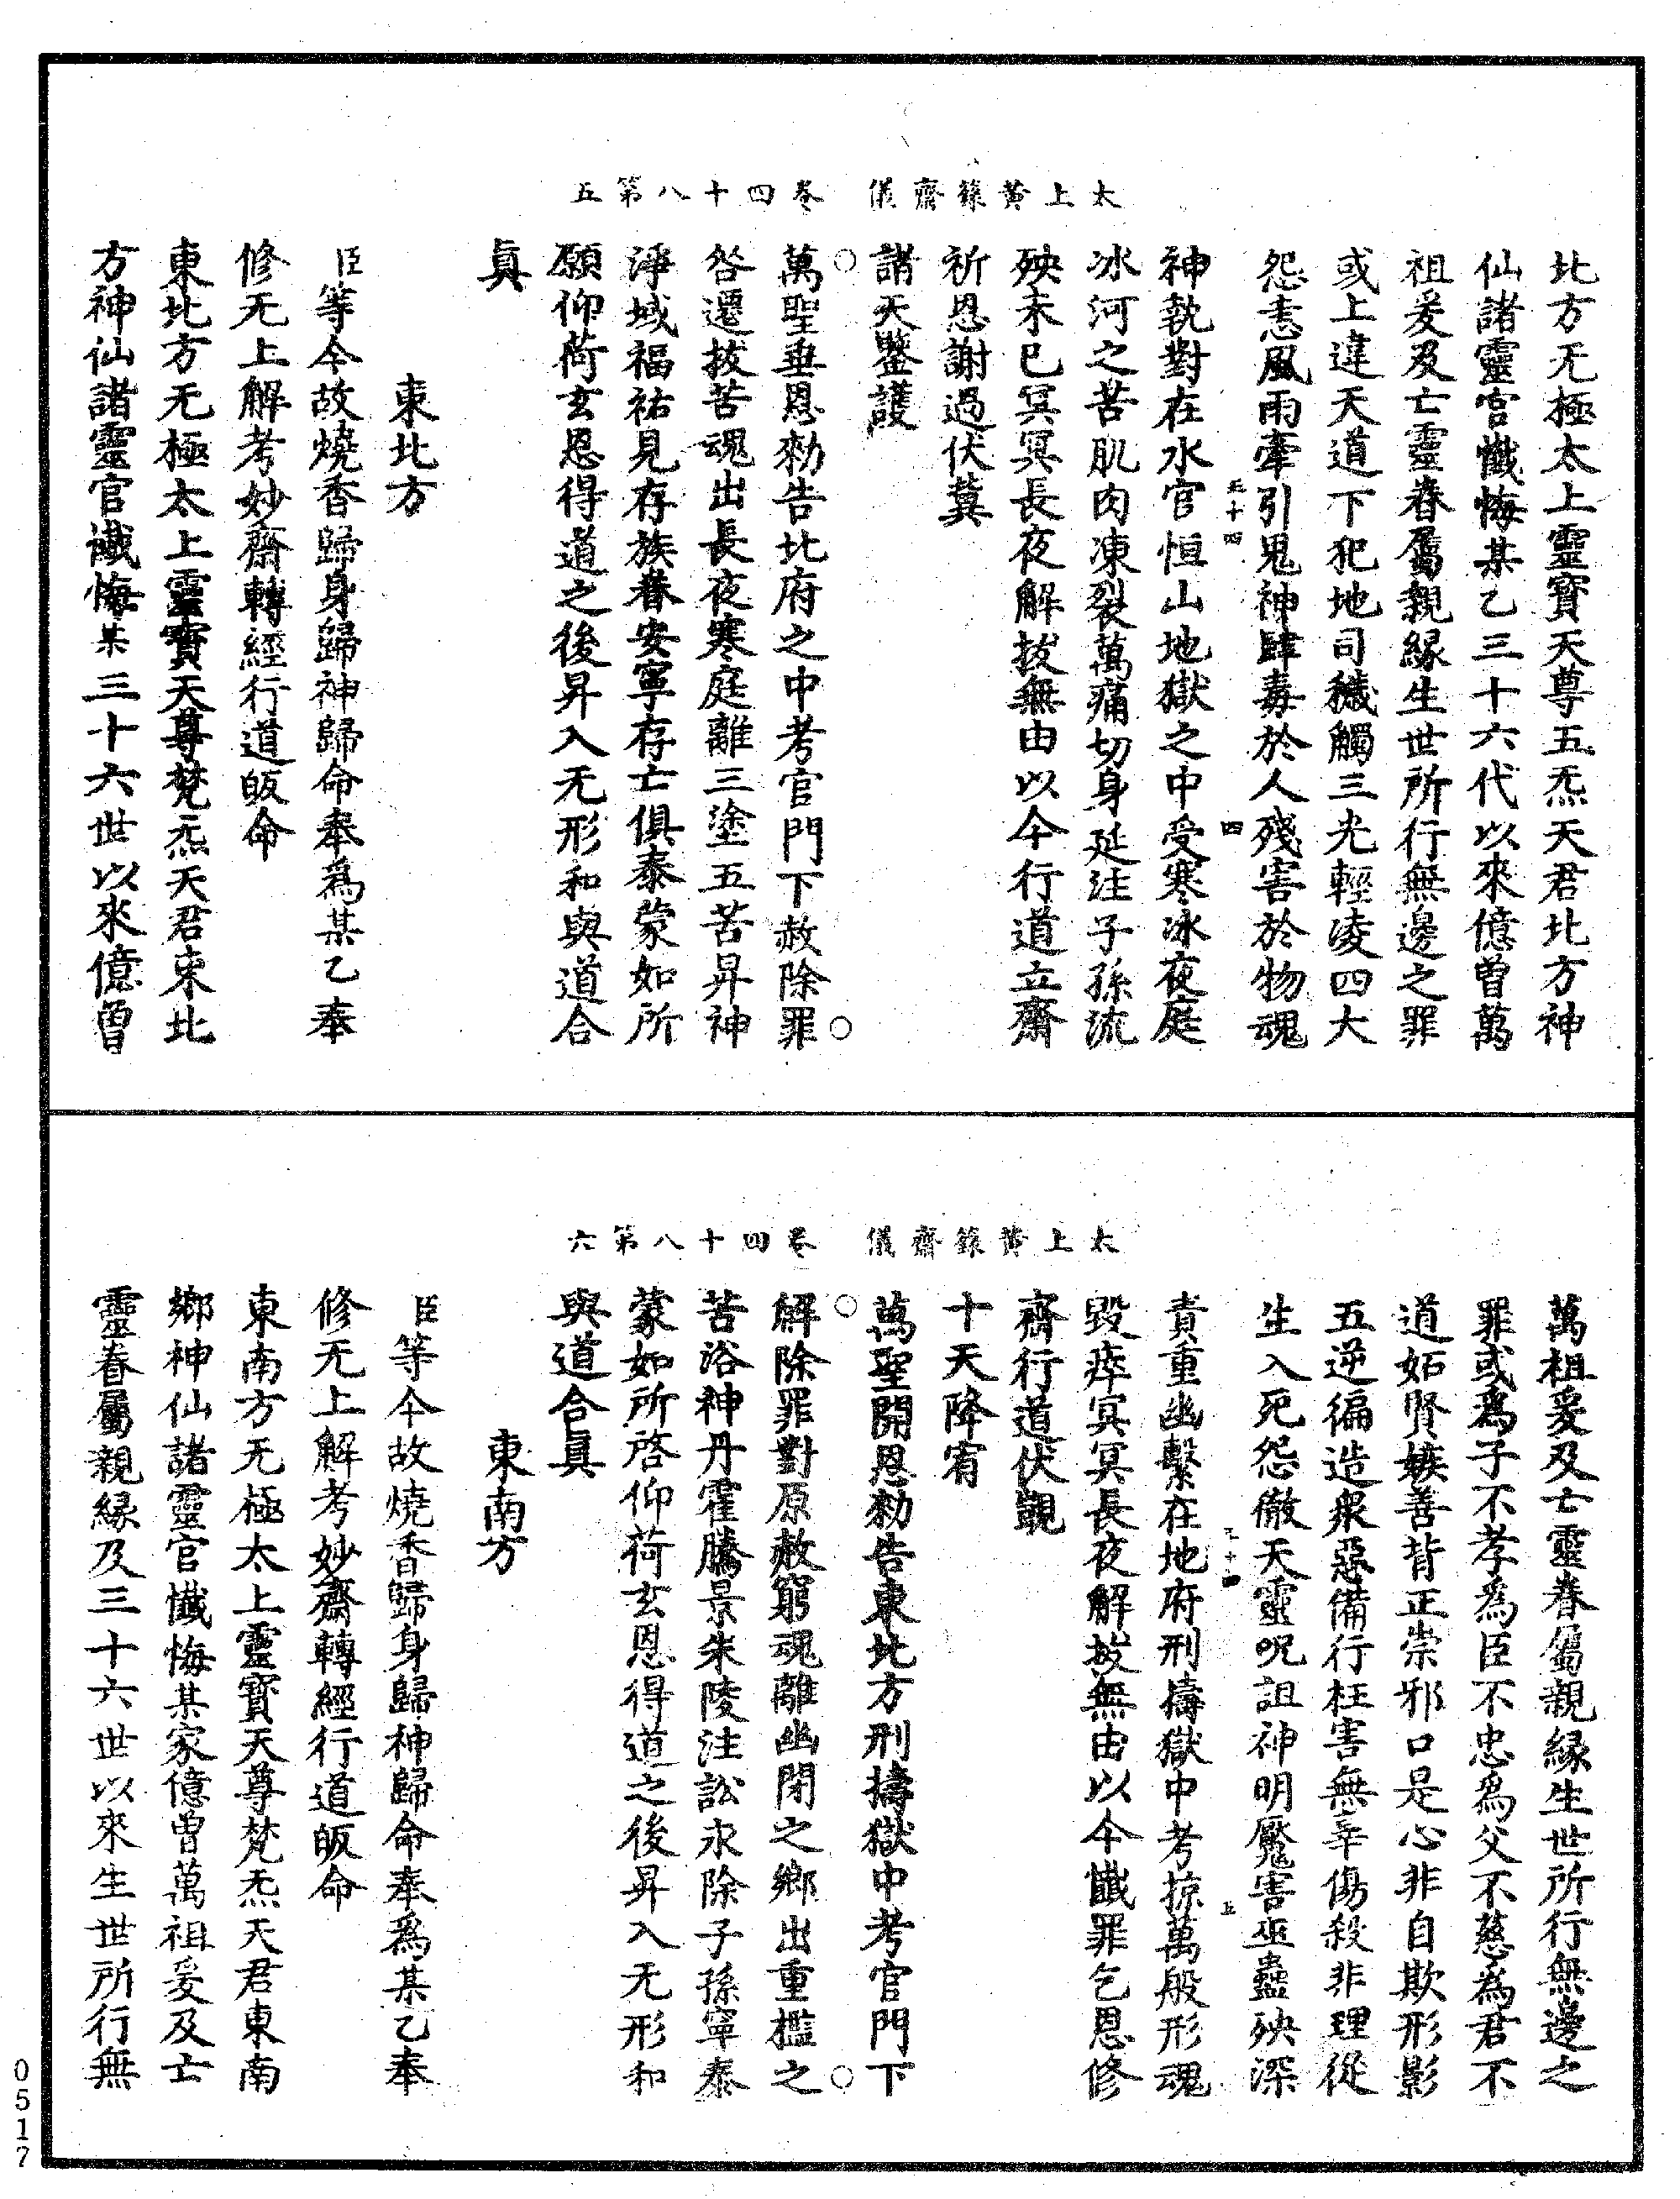 北方无極太上靈寶天尊五炁天君北方神
仙諸靈官懺悔某乙三十六代以來億曾萬
祖爰及亡靈眷屬親緣生世所行無邊之罪
或上違天道下犯地司穢觸三光輕淩四大
怨恚風雨牽引鬼神肆毒於人殘害於物魂
神執對在水官恒山地獄之中受寒冰夜庭
冰河之苦肌肉凍裂萬痛切身延注子孫流
殃未已冥冥長夜解拔無由以今行道立齋
祈恩謝過伏冀
諸天鑒護
太上黃籙齋儀 卷四十八第五
萬聖垂恩勑告北府之中考官門下赦除罪
咎遷拔苦魂出長夜寒庭離三塗五苦昇神
淨域福祐見存族眷安寧存亡俱泰蒙如所
願仰荷玄恩得道之後昇入无形和與道合
眞
東北方
臣等今故燒香歸身歸神歸命奉爲某乙奉
修无上解考妙齋轉經行道皈命
東北方无極太上靈寶天尊梵炁天君東北
方神仙諸靈官懺悔某三十六世以來億曾
萬祖爰及亡靈眷屬親緣生世所行無邊之
罪或爲子不孝爲臣不忠爲父不慈爲君不
道妬賢嫉善背正崇邪口是心非自欺形影
五逆徧造衆惡備行枉害無辜傷殺非理從
生入死怨徹天靈呪詛神明魘害巫蠱殃深
責重幽繫在地府刑擣獄中考掠萬般形魂
毀瘁冥冥長夜解拔無由以今懺罪乞恩修
齋行道伏覬
十天降宥
萬聖開恩勑告東北方刑擣獄中考官門下
太上黃籙齋儀 卷四十八第六
解除罪對原赦窮魂離幽閉之鄉出重檻之
苦浴神丹霍騰景朱陵注訟永除子孫寧泰
蒙如所啓仰荷玄恩得道之後昇入无形和
與道合眞
東南方
臣等今故燒香歸身歸神歸命奉爲某乙奉
修无上解考妙齋轉經行道皈命
東南方无極太上靈寶天尊梵炁天君東南
鄉神仙諸靈官懺悔某家億曾萬祖爰及亡
靈眷屬親緣及三十六世以來生世所行無
0517